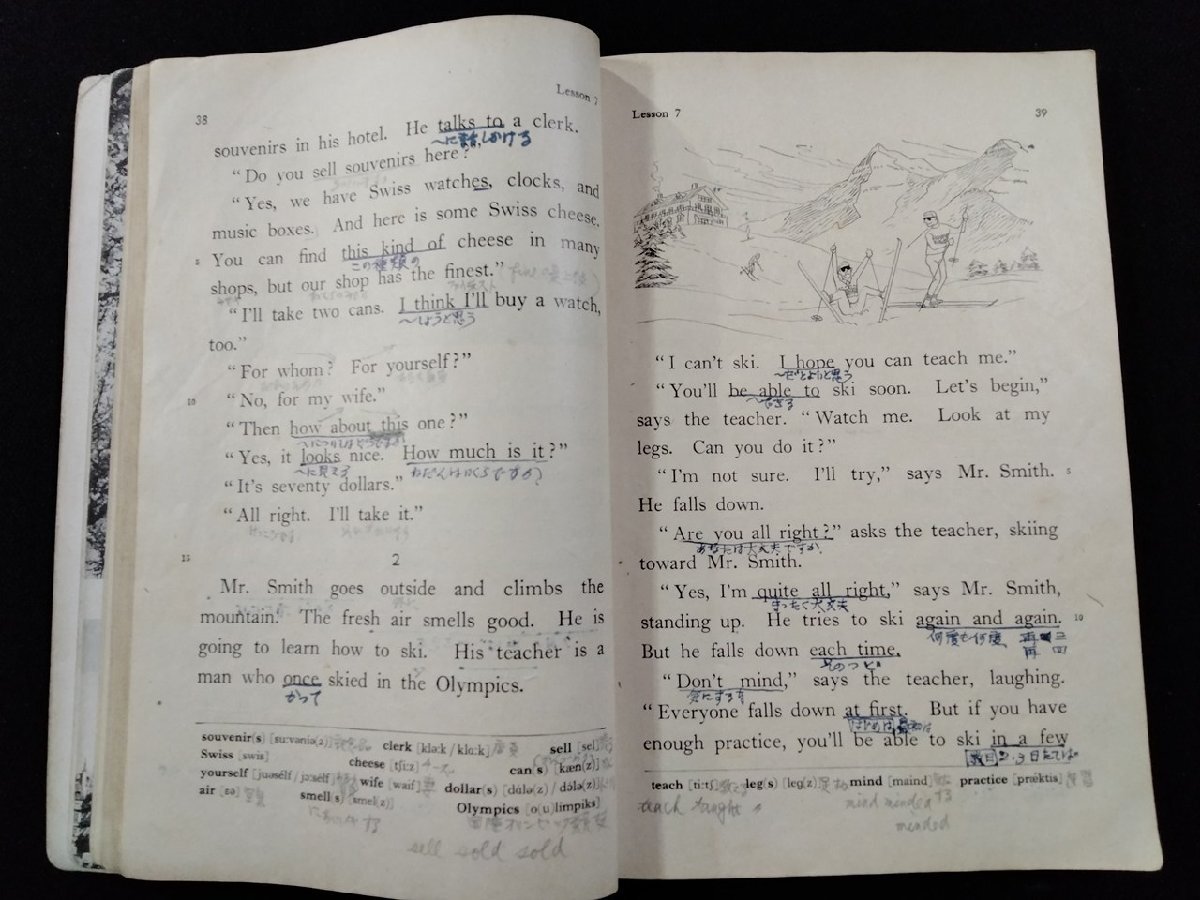 38
Lesson 7
souvenirs in his hotel. He talks to a clerk.
"Do you sell souvenirs here?"
"Yes, we have Swiss watches, clocks, and
music boxes. And here is some Swiss cheese.
5 You can find this kind of cheese in many
この種類の
shops, but our shop has the finest."
"I'll take two cans. I think I'll buy a watch,
〜しようと思う
too."
"For whom? For yourself?"
10 "No, for my wife."
"Then how about this one?"
"Yes, it looks nice. How much is it?"
〜に見える
"It's seventy dollars."
"All right. I'll take it."
15 2
Mr. Smith goes outside and climbs the
mountain. The fresh air smells good. He is
going to learn how to ski. His teacher is a
man who once skied in the Olympics.
かつて
souvenir(s) clerk [klə:k / klɑ:k] sell [sel]
Swiss [swis] cheese [tʃi:z] can(s) [kæn(z)]
yourself wife [waif] dollar(s)
air [ɛə] smell(s) [smel(z)] Olympics [o(u)limpiks]
sell sold sold
Lesson 7
39
"I can't ski. I hope you can teach me."
"You'll be able to ski soon. Let's begin,"
〜できる
says the teacher. "Watch me. Look at my
legs. Can you do it?"
"I'm not sure. I'll try," says Mr. Smith. 5
He falls down.
"Are you all right?" asks the teacher, skiing
あなたは大丈夫ですか
toward Mr. Smith.
"Yes, I'm quite all right," says Mr. Smith,
まったく大丈夫
standing up. He tries to ski again and again. 10
何度も何度
But he falls down each time.
そのつど
"Don't mind," says the teacher, laughing.
気にするな
"Everyone falls down at first. But if you have
はじめは
enough practice, you'll be able to ski in a few
teach [ti:tʃ] leg(s) [leg(z)] mind [maind] practice [præktis]
teach taught